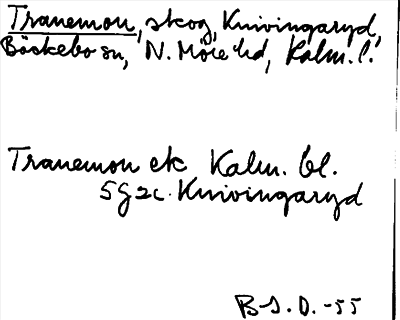 Tranemon, skog, Knivingaryd,
Bäckebo sn, N. Möre hd, Kalm. l.
Tranemon ek Kalm. bl.
5g2c. Knivingaryd
B-S. D. -55